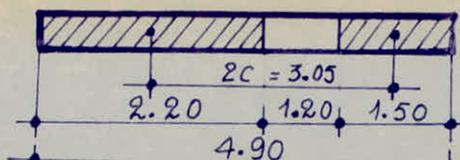 2C = 3.05
2.20 1.20 1.50
4.90